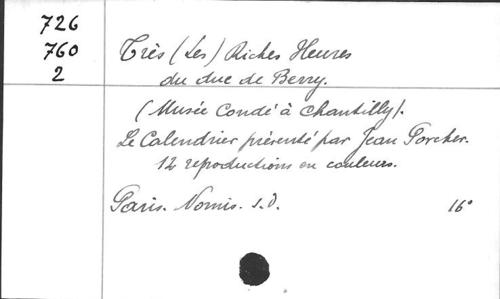 726
760
2
Très (Les) Riches Heures
du duc de Berry.
(Musée Condé à Chantilly).
Le Calendrier présenté par Jean Porcher.
12 reproductions en couleurs.
Paris. Nomis. s.d. 16°